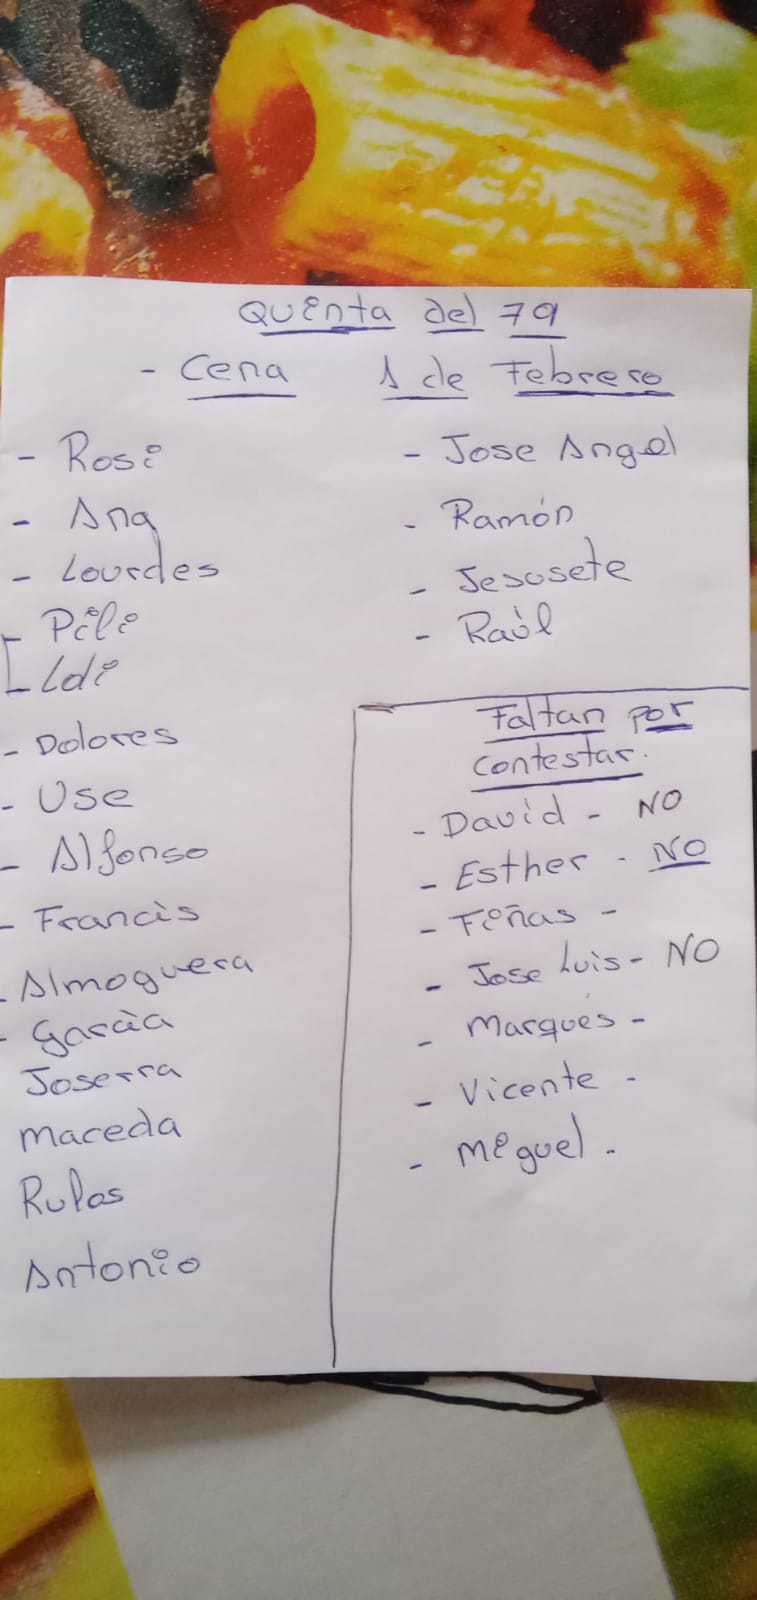 Quinta del 79
- Cena 1 de Febrero
- Rosi
- Ana
- Lourdes
- Pili
- Idi
- Dolores
- Use
- Alfonso
- Francis
- Almoguera
- García
Joserra
Maceda
Rulas
Antonio
- Jose Angel
- Ramón
- Jesusete
- Raúl
Faltan por
contestar.
- David - NO
- Esther - NO
- Fiñas -
- Jose Luis - NO
- Marques -
- Vicente -
- Miguel .